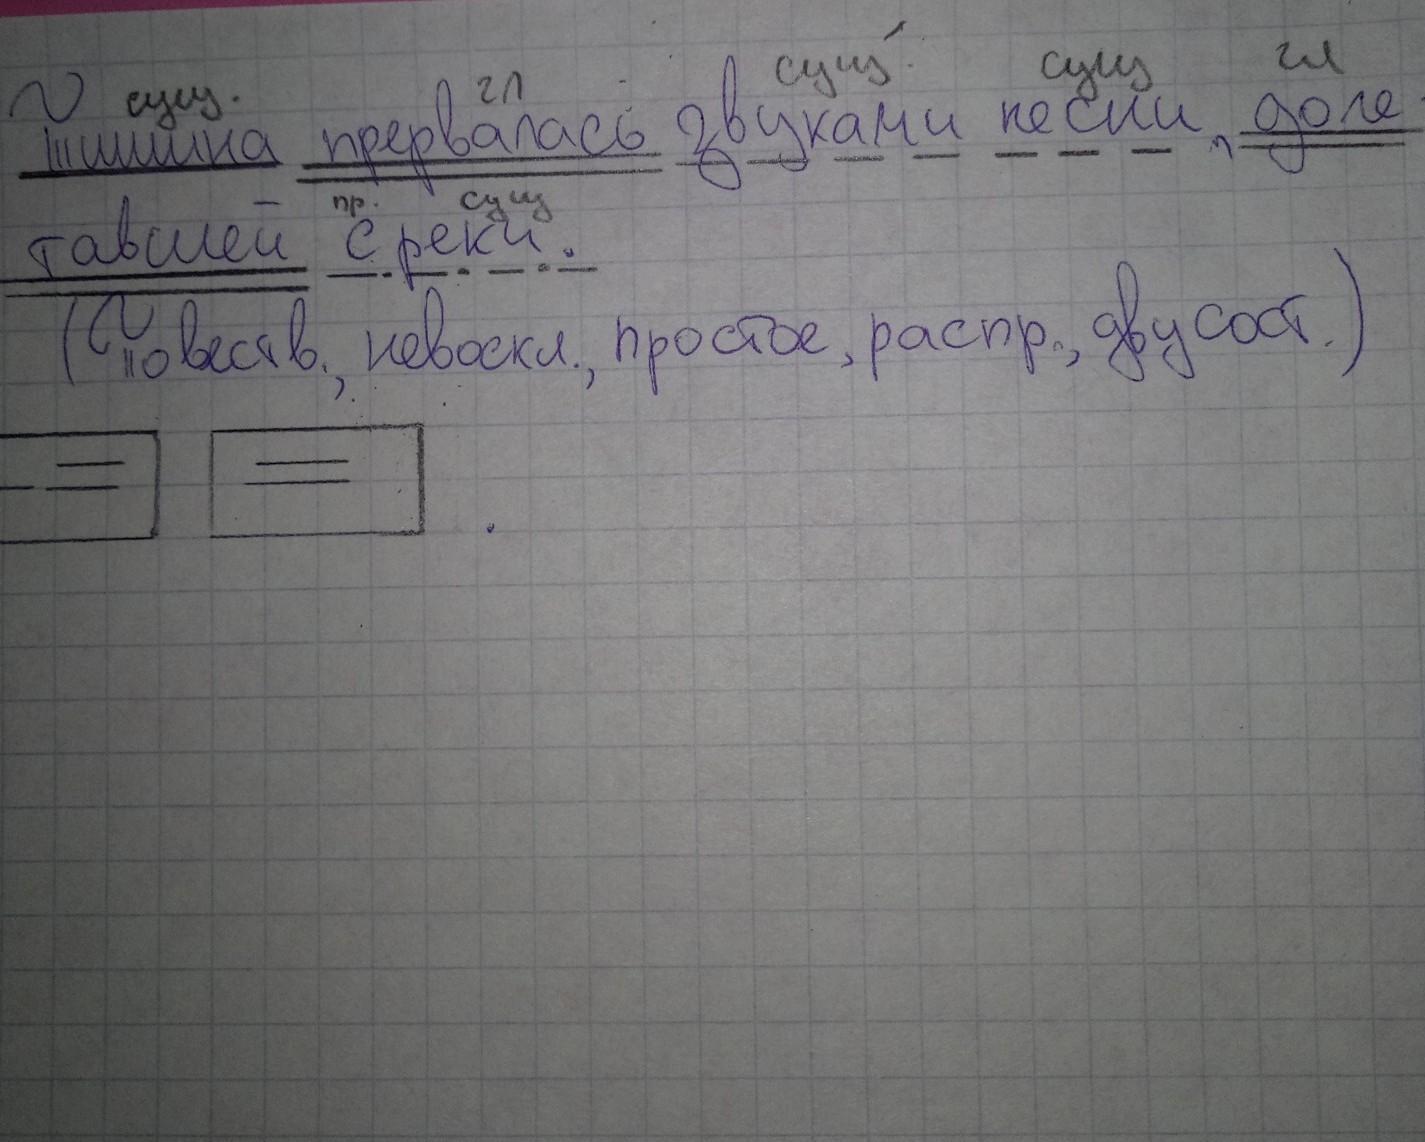 сущ. гл сущ. сущ гл
Тишина прервалась звуками песни, доле-
пр. сущ
тавшей с реки.
(Повеств., невоскл., простое, распр., двусост.)